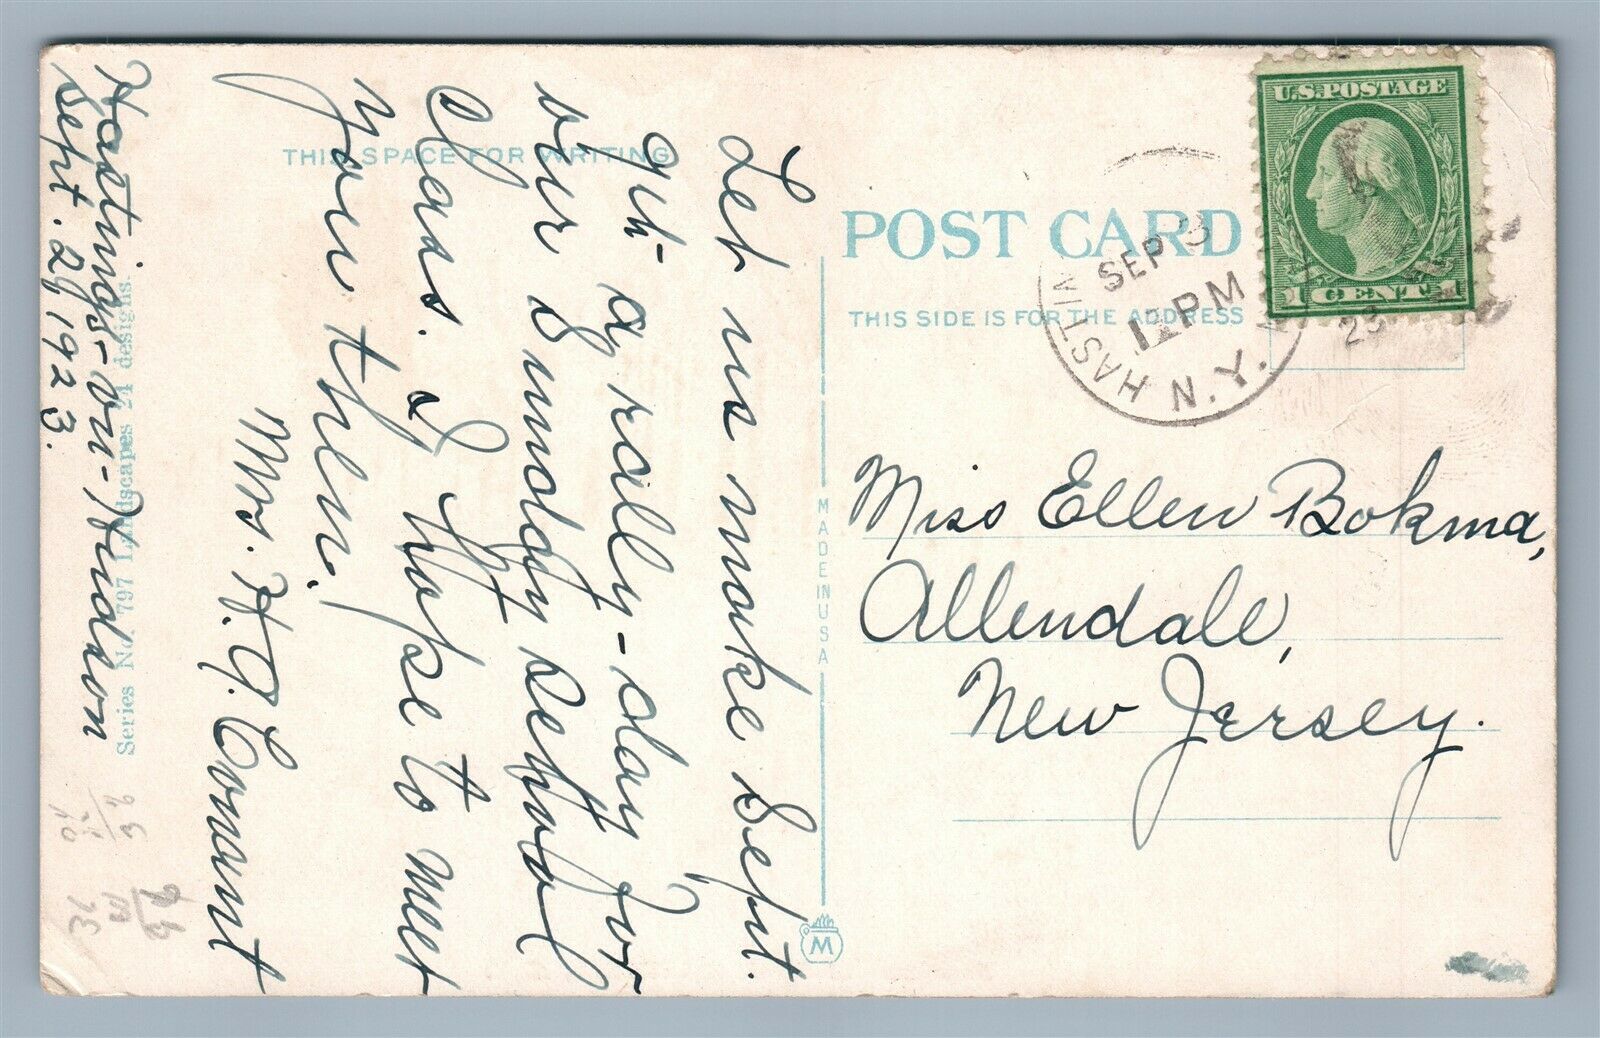 Hastings-on-Hudson
Sept. 29, 1923.
Let us make Sept.
9th a rally-day for
our Sunday school
Class. I hope to meet
you then.
Mrs. H. G. Conant
THIS SPACE FOR WRITING
Series No. 797 Landscapes 24 designs.
MADE IN U S A
M
POST CARD
THIS SIDE IS FOR THE ADDRESS
U.S.POSTAGE
1 CENT 1
SEP
12 PM
N.Y.
23
Miss Ellen Bokma,
Allendale,
New Jersey.